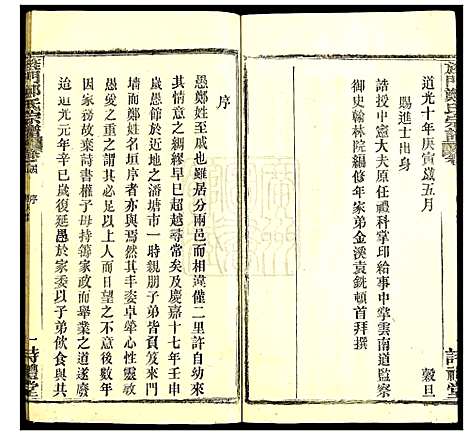 道光十年庚寅歲五月
穀旦
賜進士出身
誥授中憲大夫原任禮科掌印給事中掌雲南道監察
御史翰林院編修年家弟金溪袁銑頓首拜撰
詩禮堂
序
愚鄭姓至戚也雖居分兩邑而相違僅二里許自幼來
其情意之綢繆早已超越尋常矣及慶嘉十七年壬申
歲愚館於近地之潘塘市一時親朋子弟皆負笈來門
而鄭姓名垣序者亦與焉然其手姿卓犖心性靈敏
愚愛之重之蓋有加於此以上人而日望之不意後因
家務故棄詩書權子母持籌握政而舉業之道遂廢
迨道光元年辛巳歲復延愚於家委以子弟飲食與其
鄭氏宗譜
序
一
詩禮堂